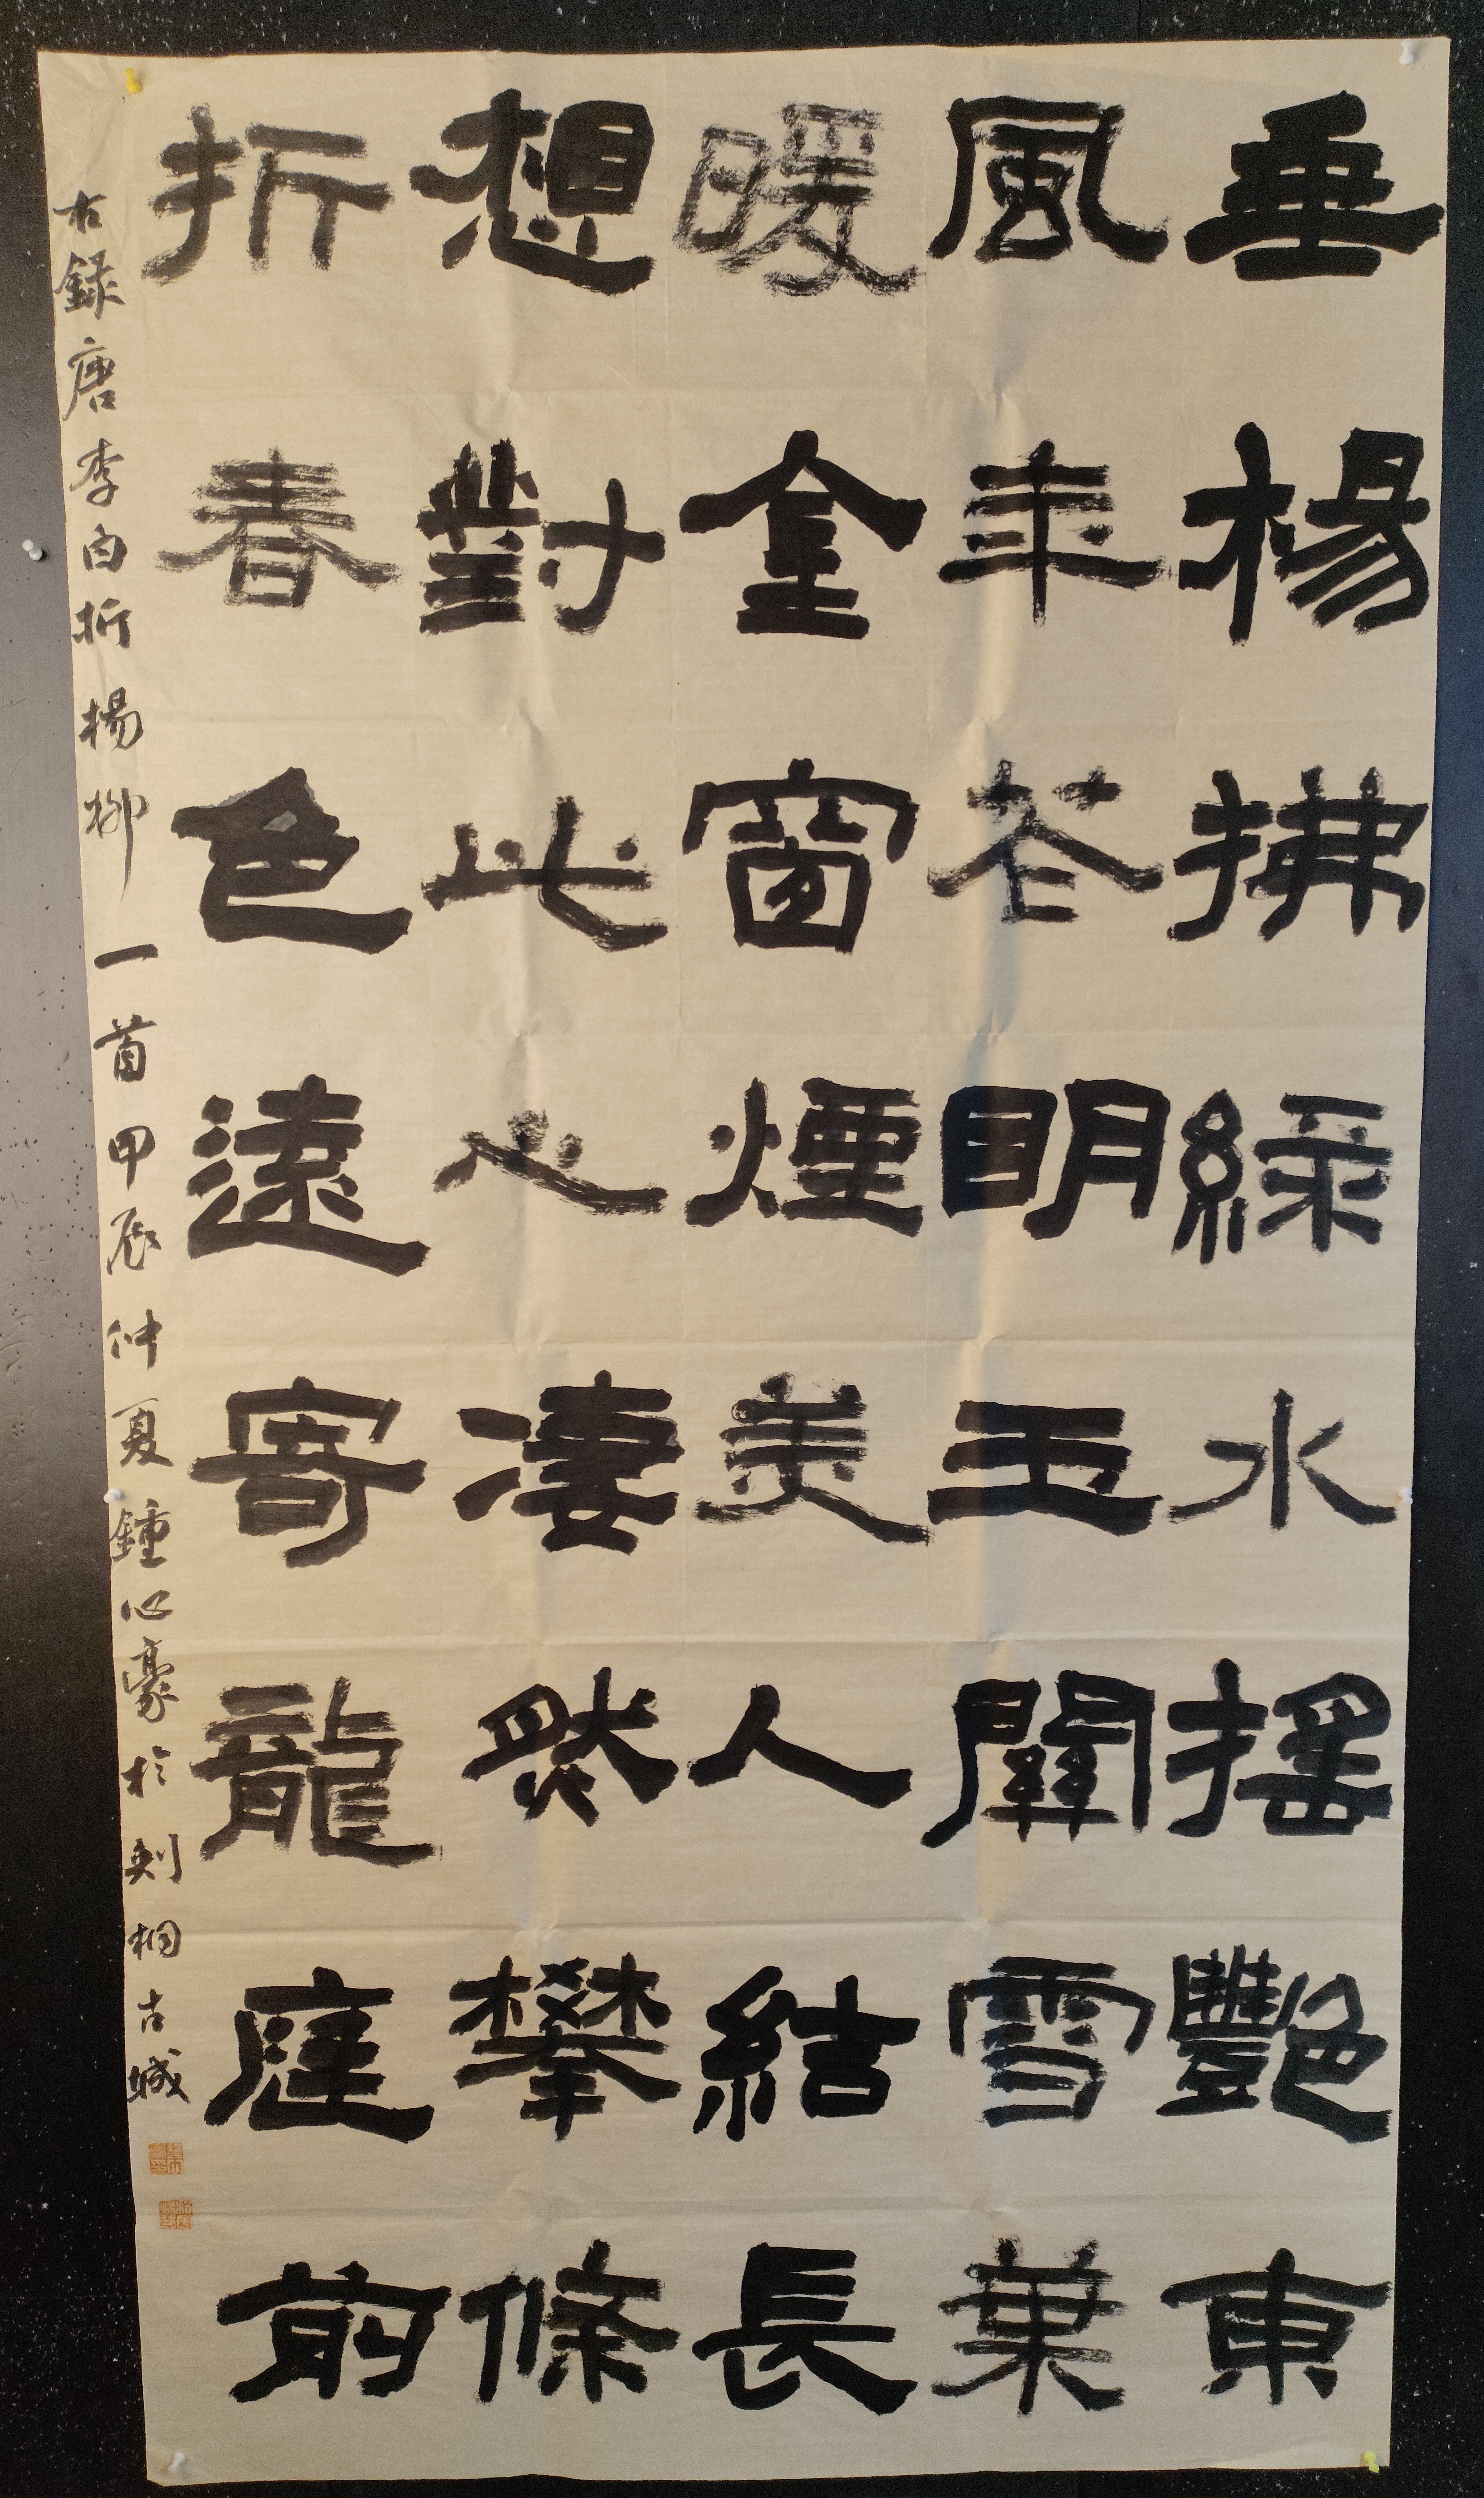 垂楊拂緑水摇艷東
風年花明玉關雪葉
暖金窗煙美人結長
想對此心凄然攀條
折春色遠寄龍庭前
右録唐李白折楊柳一首甲辰仲夏鍾心豪於刺桐古城